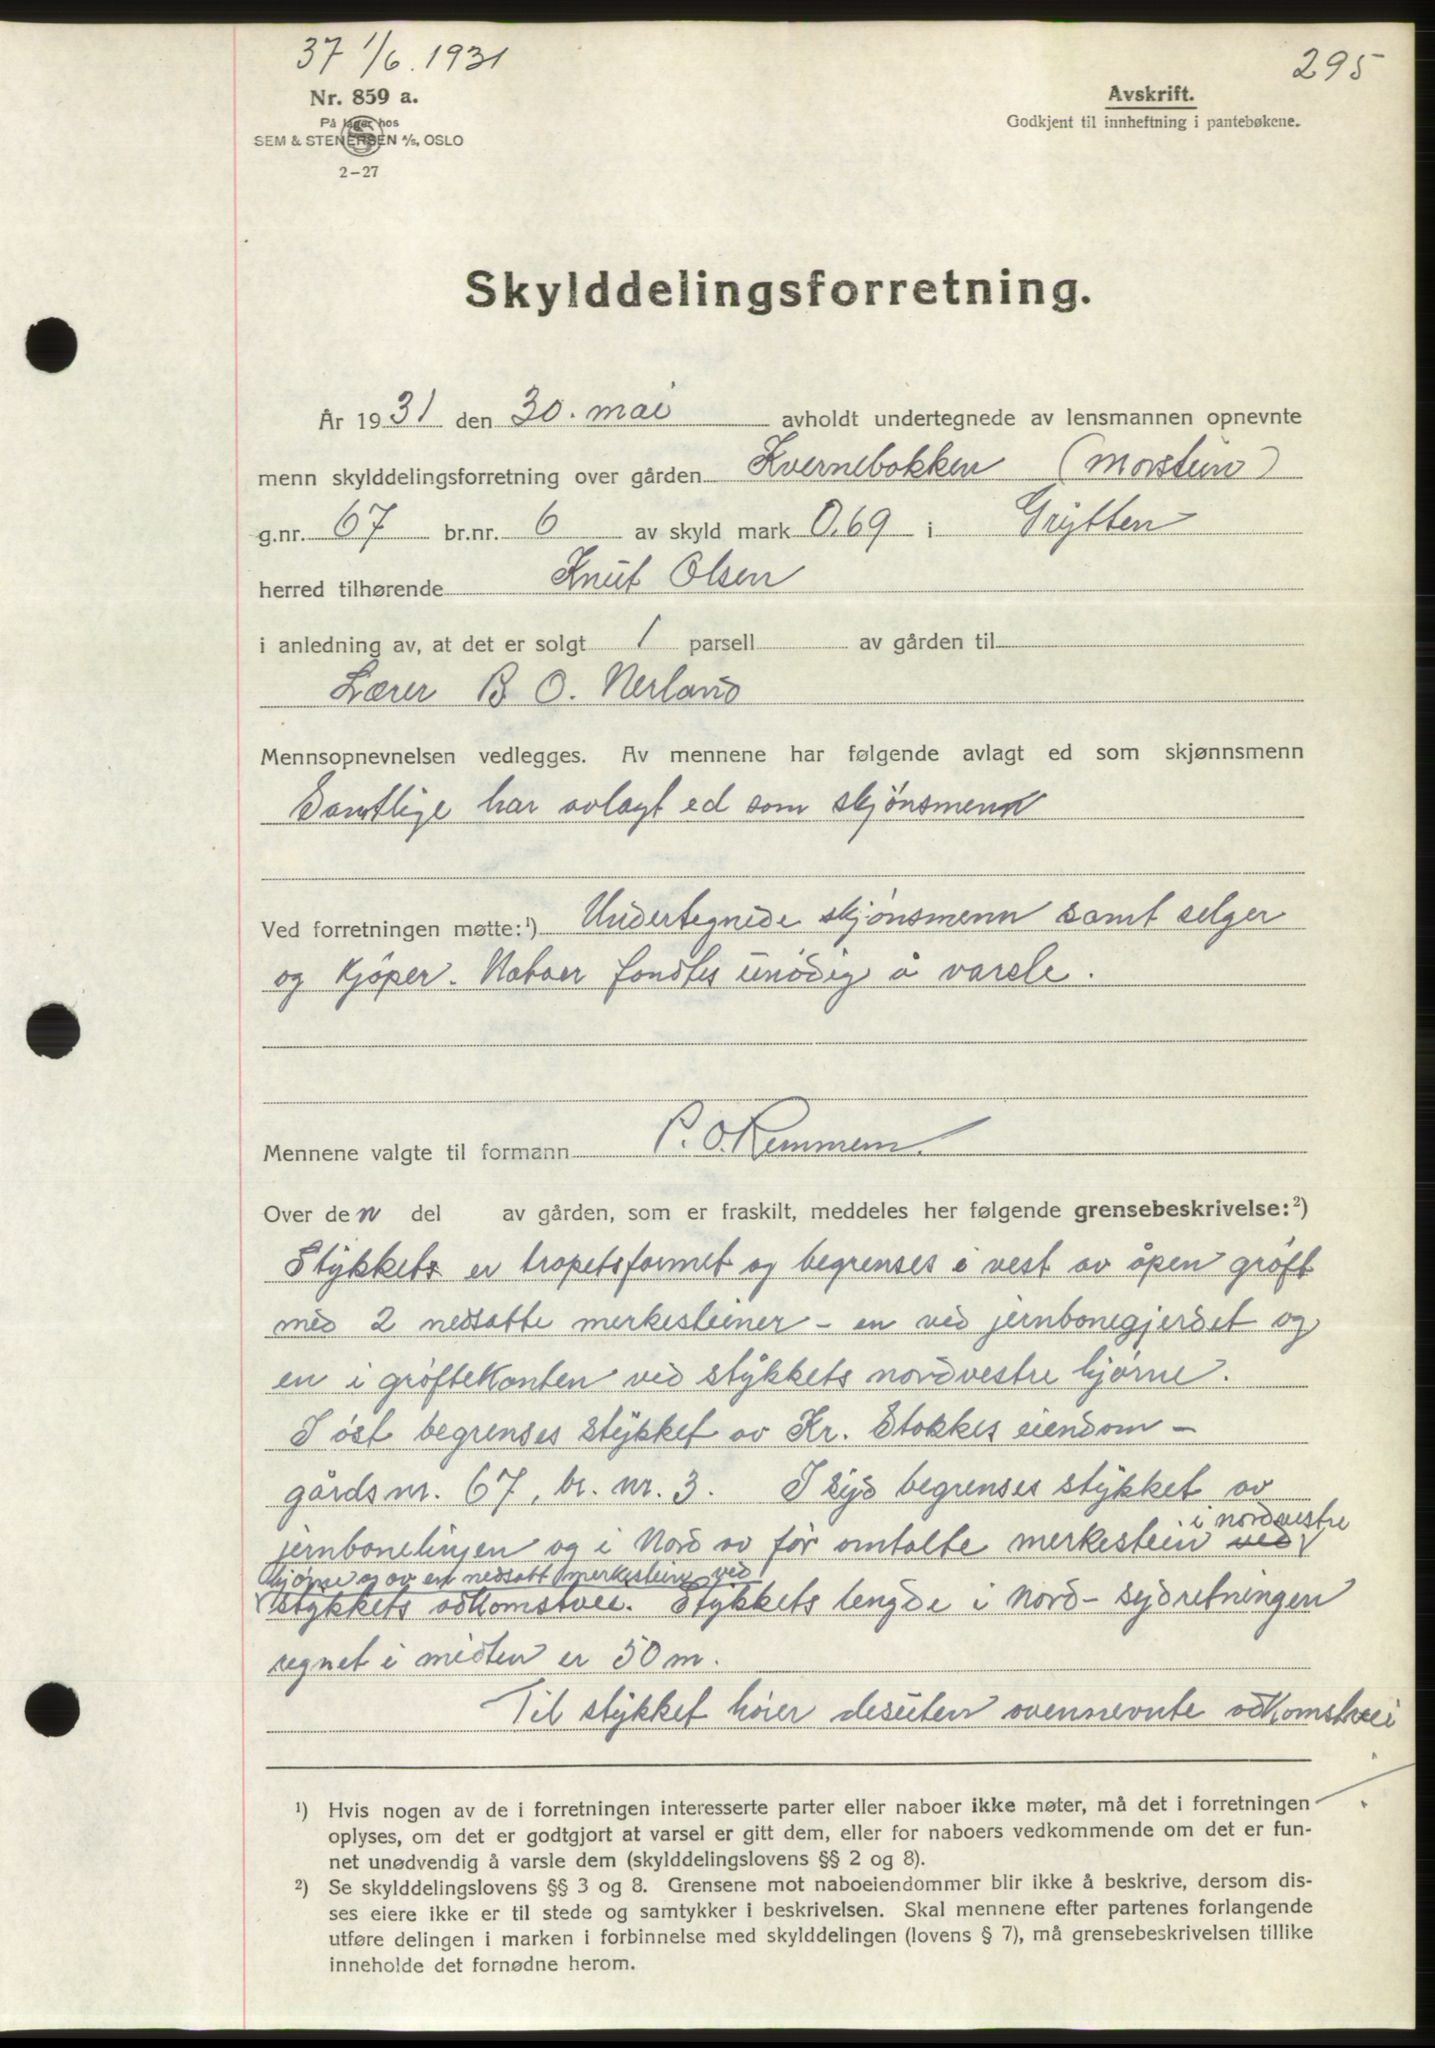 37 1/6.1931
295
Nr. 859 a.
På lager hos
SEM & STENERSEN A/S, OSLO
2-27
Avskrift.
Godkjent til innheftning i pantebøkene.
Skylddelingsforretning.
År 1931 den 30. mai avholdt undertegnede av lensmannen opnevnte
menn skylddelingsforretning over gården Kvernebakken (Morstein)
g.nr. 67 br.nr. 6 av skyld mark 0,69 i Grytten
herred tilhørende Knut Olsen
i anledning av, at det er solgt 1 parsell av gården til
Lærer B O. Nerland
Mennsopnevnelsen vedlegges. Av mennene har følgende avlagt ed som skjønnsmenn
Samtlige har avlagt ed som skjønsmenn
Ved forretningen møtte:¹) Undertegnede skjønsmenn samt selger
og kjøper. Naboer fandtes unødig å varsle.
Mennene valgte til formann P. O. Remmem.
Over den del av gården, som er fraskilt, meddeles her følgende grensebeskrivelse:²)
Stykkets er trapetsformet og begrenses i vest av åpen grøft
med 2 nedsatte merkesteiner - en ved jernbanegjerdet og
en i grøftekanten ved stykkets nordvestre hjørne.
I øst begrenses stykket av Kr. Stokkes eiendom -
gårdsnr. 67, br. nr. 3. I syd begrenses stykket av
i nordvestre
jernbanelinjen og i Nord av før omtalte merkestein ved
hjørne og av en nedsatt merkestein ved
stykkets adkomstvei. Stykkets lengde i nord-sydretningen
regnet i midten er 50 m.
Til stykket hører desuten ovennevnte adkomstvei
¹) Hvis nogen av de i forretningen interesserte parter eller naboer ikke møter, må det i forretningen
oplyses, om det er godtgjort at varsel er gitt dem, eller for naboers vedkommende om det er fun-
net unødvendig å varsle dem (skylddelingslovens §§ 2 og 8).
²) Se skylddelingslovens §§ 3 og 8. Grensene mot naboeiendommer blir ikke å beskrive, dersom dis-
ses eiere ikke er til stede og samtykker i beskrivelsen. Skal mennene efter partenes forlangende
utføre delingen i marken i forbinnelse med skylddelingen (lovens § 7), må grensebeskrivelsen tillike
inneholde det fornødne herom.